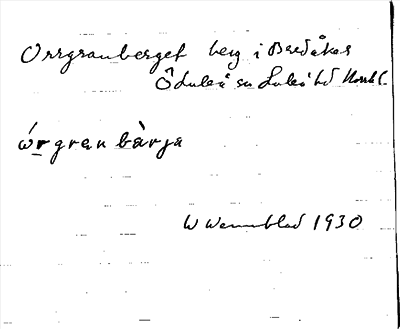 Orrgranberget berg i Bredåker
Ö Luleå sn Luleå td Norrb l.
órgranbàrja
W Wennblad 1930